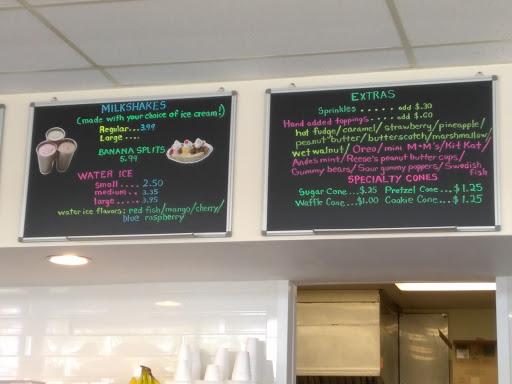 MILKSHAKES
(made with your choice of ice cream!)
Regular... 3.99
Large....
BANANA SPLITS
5.99
WATER ICE
small .... 2.50
medium... 3.35
large .... 3.95
water ice flavors: red fish/mango/cherry/
blue raspberry
EXTRAS
Sprinkles ..... add $.30
Hand added toppings.... add $.60
hot fudge/caramel/strawberry/pineapple/
peanut butter/butterscotch/marshmallow/
wet walnut/Oreo/mini M+M's/Kit Kat/
Andes mint/Reese's peanut butter cups/
Gummy bears/Sour gummy poppers/Swedish
fish
SPECIALTY CONES
Sugar Cone...$.25 Pretzel Cone...$1.25
Waffle Cone...$1.00 Cookie Cone...$1.25